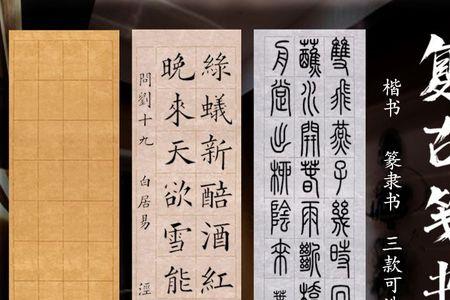 复古笺
楷书 篆隶书 三款可
雙飛燕子幾時回
蘸水開春雨斷橋
舟撐出柳陰來
綠蟻新醅酒紅
晚來天欲雪能
問劉十九 白居易